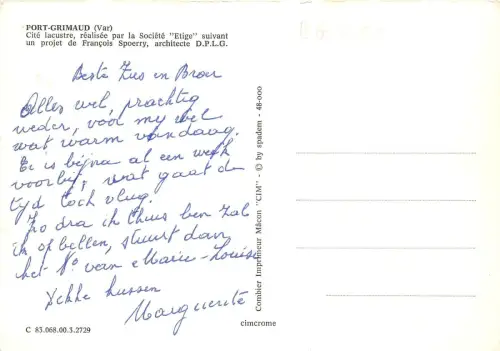 PORT-GRIMAUD (Var)
Cité lacustre, réalisée par la Société "Etige" suivant
un projet de François Spoerry, architecte D.P.L.G.
Beste Zus en Broer
Alles wel, prachtig
weder, vóór my wel
wat warm vandaag.
Er is bijna al een week
voorbij, wat gaat de
tyd toch vlug.
Zo dra ik thuis ben zal
ik opbellen, stuurt dan
het N° van Marie-Louise
Dikke kussen
Marguerite
C 83.068.00.3.2729
cimcrome
Combier Imprimeur Mâcon "CIM" - © by spadem - 48-000